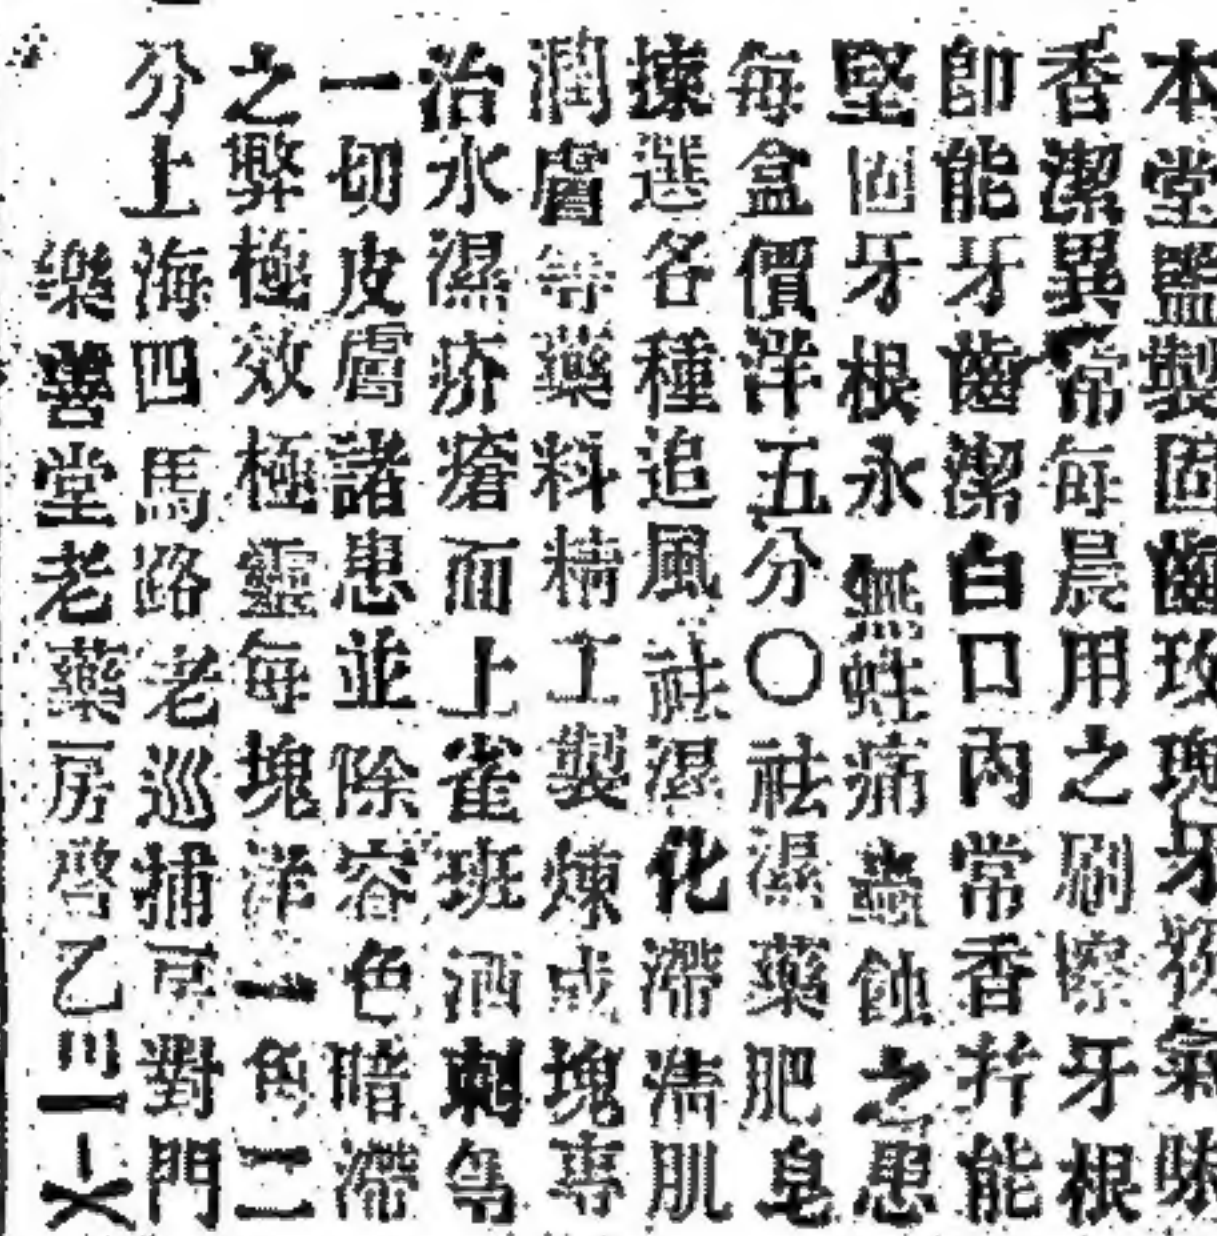 本堂監製固齒玫瑰牙粉氣味
香潔異常每晨用之刷擦牙根
卽能牙齒潔白口內常香幷能
堅固牙根永無蛀痛蟲蝕之患
每盒價洋五分〇祛濕藥肥皂
揀選各種追風祛濕化滯淸肌
潤膚等藥料精工製煉成塊專
治水濕疥瘡面上雀班酒刺等
一切皮膚諸患並除容色暗滯
之弊極效極靈每塊洋一角二
分上海四馬路老巡捕房對門
樂善堂老藥房啓乙〣一〦